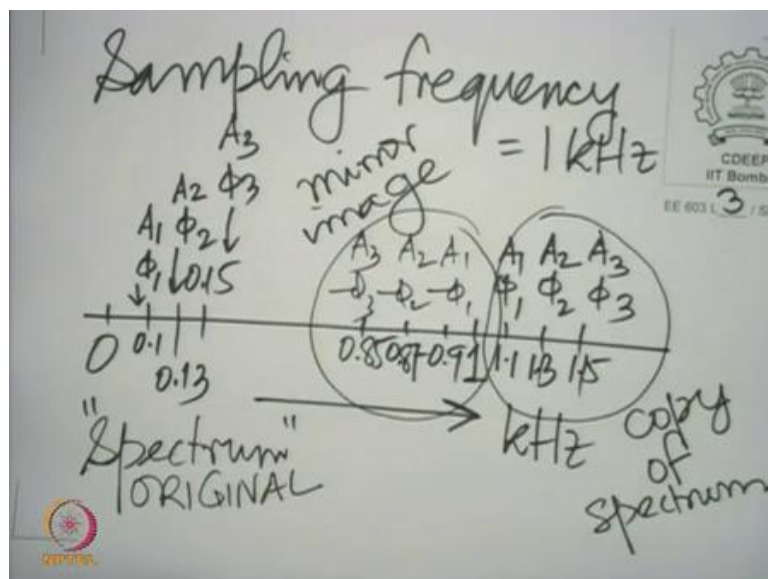 Sampling frequency
= 1 kHz
CDEEP
IIT Bomb
EE 603 L 3 / S
A3
A2 Φ3
A1 Φ2 ↓
Φ1 ↓ 0.15
↓
mirror
image
A3 A2 A1
-Φ3 -Φ2 -Φ1
A1 A2 A3
Φ1 Φ2 Φ3
0 0.1
0.13
0.85 0.87 0.9 1 1.1 1.3 1.5
"Spectrum"
ORIGINAL
kHz
copy
of
spectrum
NPTEL